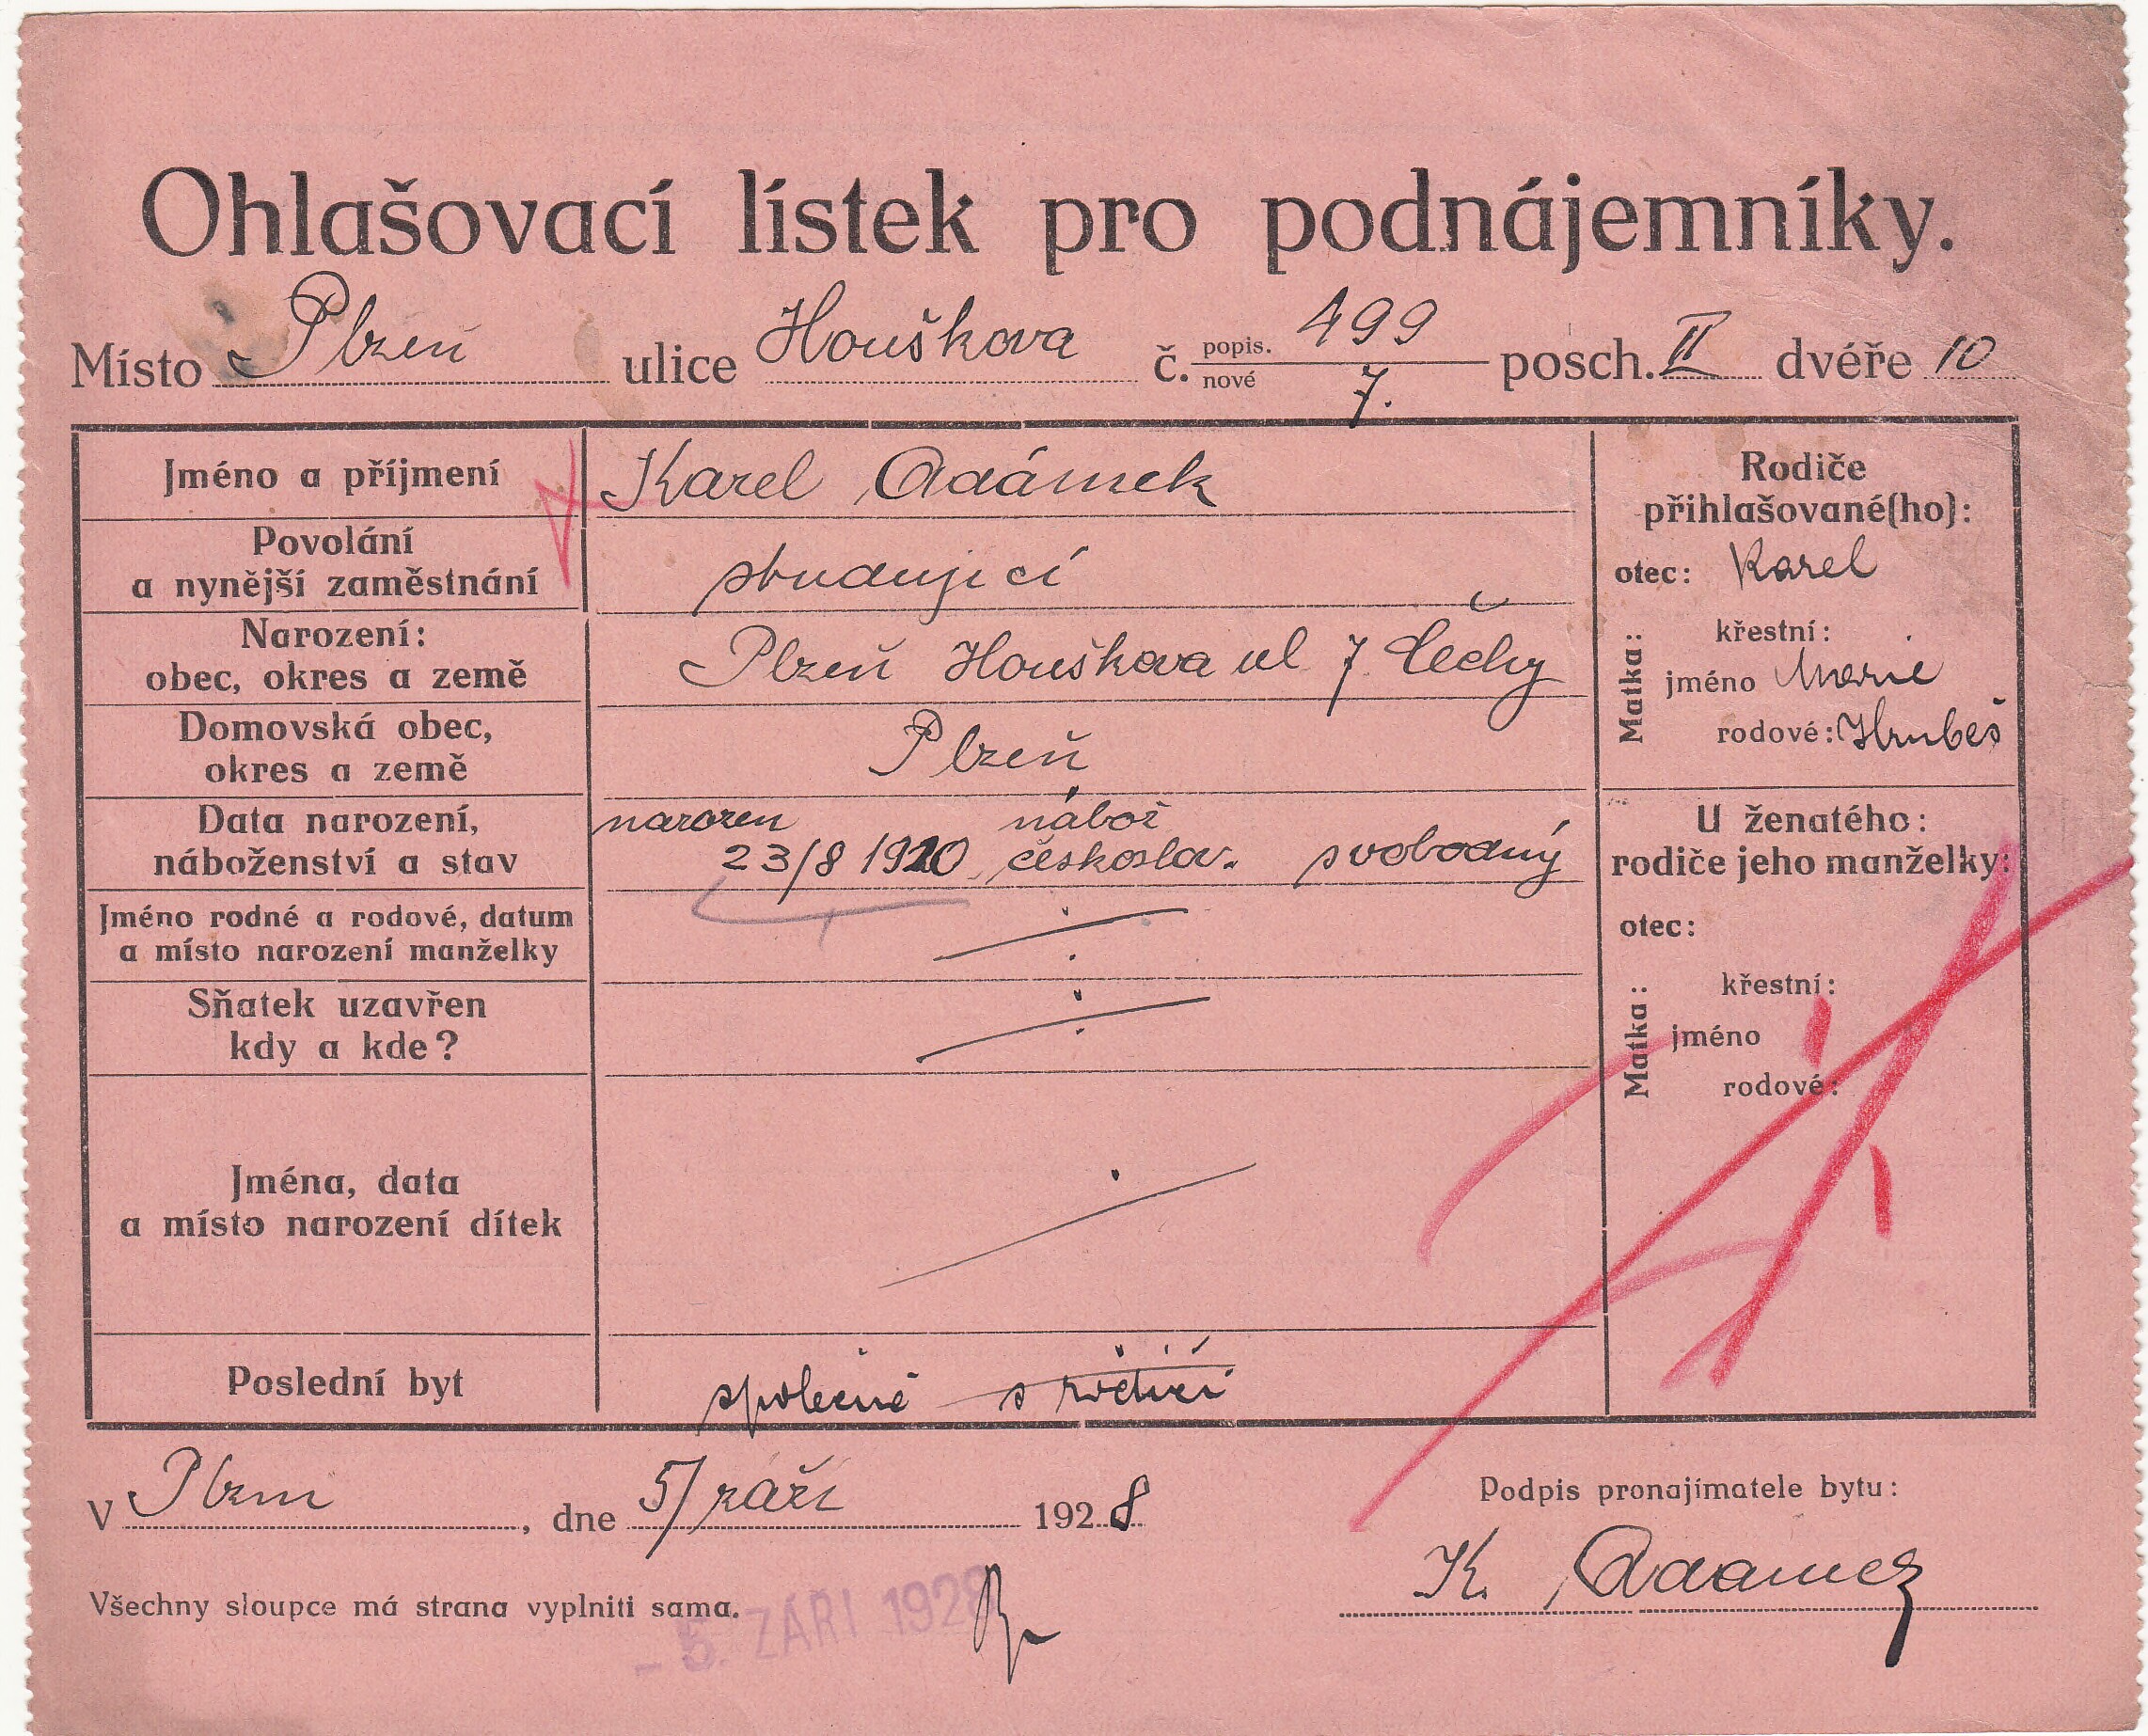 Ohlašovací lístek pro podnájemníky.
Místo Plzeň ulice Houškova č. popis. 499 nové 7. posch. II dvéře 10
Jméno a příjmení Karel Adámek
Povolání
a nynější zaměstnání studující
Narození:
obec, okres a země Plzeň Houškova ul 7 Čechy
Domovská obec,
okres a země Plzeň
Data narození,
náboženství a stav narozen 23/8 1910 nábož českoslov. svobodný
Jméno rodné a rodové, datum
a místo narození manželky
Sňatek uzavřen
kdy a kde?
Jména, data
a místo narození dítek
Poslední byt společně s rodiči
Rodiče
přihlašované(ho):
otec: Karel
Matka:
křestní:
jméno Marie
rodové: Hrubeš
U ženatého:
rodiče jeho manželky:
otec:
Matka:
křestní:
jméno
rodové:
V Plzni, dne 5/září 1928
Podpis pronajímatele bytu:
K. Adamek
Všechny sloupce má strana vyplniti sama.
- 5. ZÁŘÍ 1928